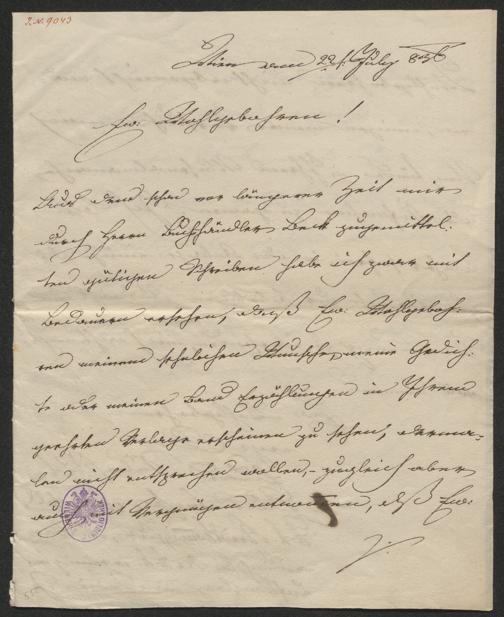 J.N. 9043
Wien den 22t. July 856
Ew: Wohlgebohren!
Aus dem schon vor längerer Zeit mir
durch Herrn Buchhändler Beck zugemittel-
ten gütigen Schreiben habe ich zwar mit
Bedauern ersehen, daß Ew: Wohlgeboh-
ren meinem sehnlichen Wunsche, meine Gedich-
te oder meinen Band Erzählungen in Ihrem
geehrten Verlage erscheinen zu sehen, derma-
len nicht entsprechen wollen, – zugleich aber
auch mit Vergnügen entnommen, daß Ew: